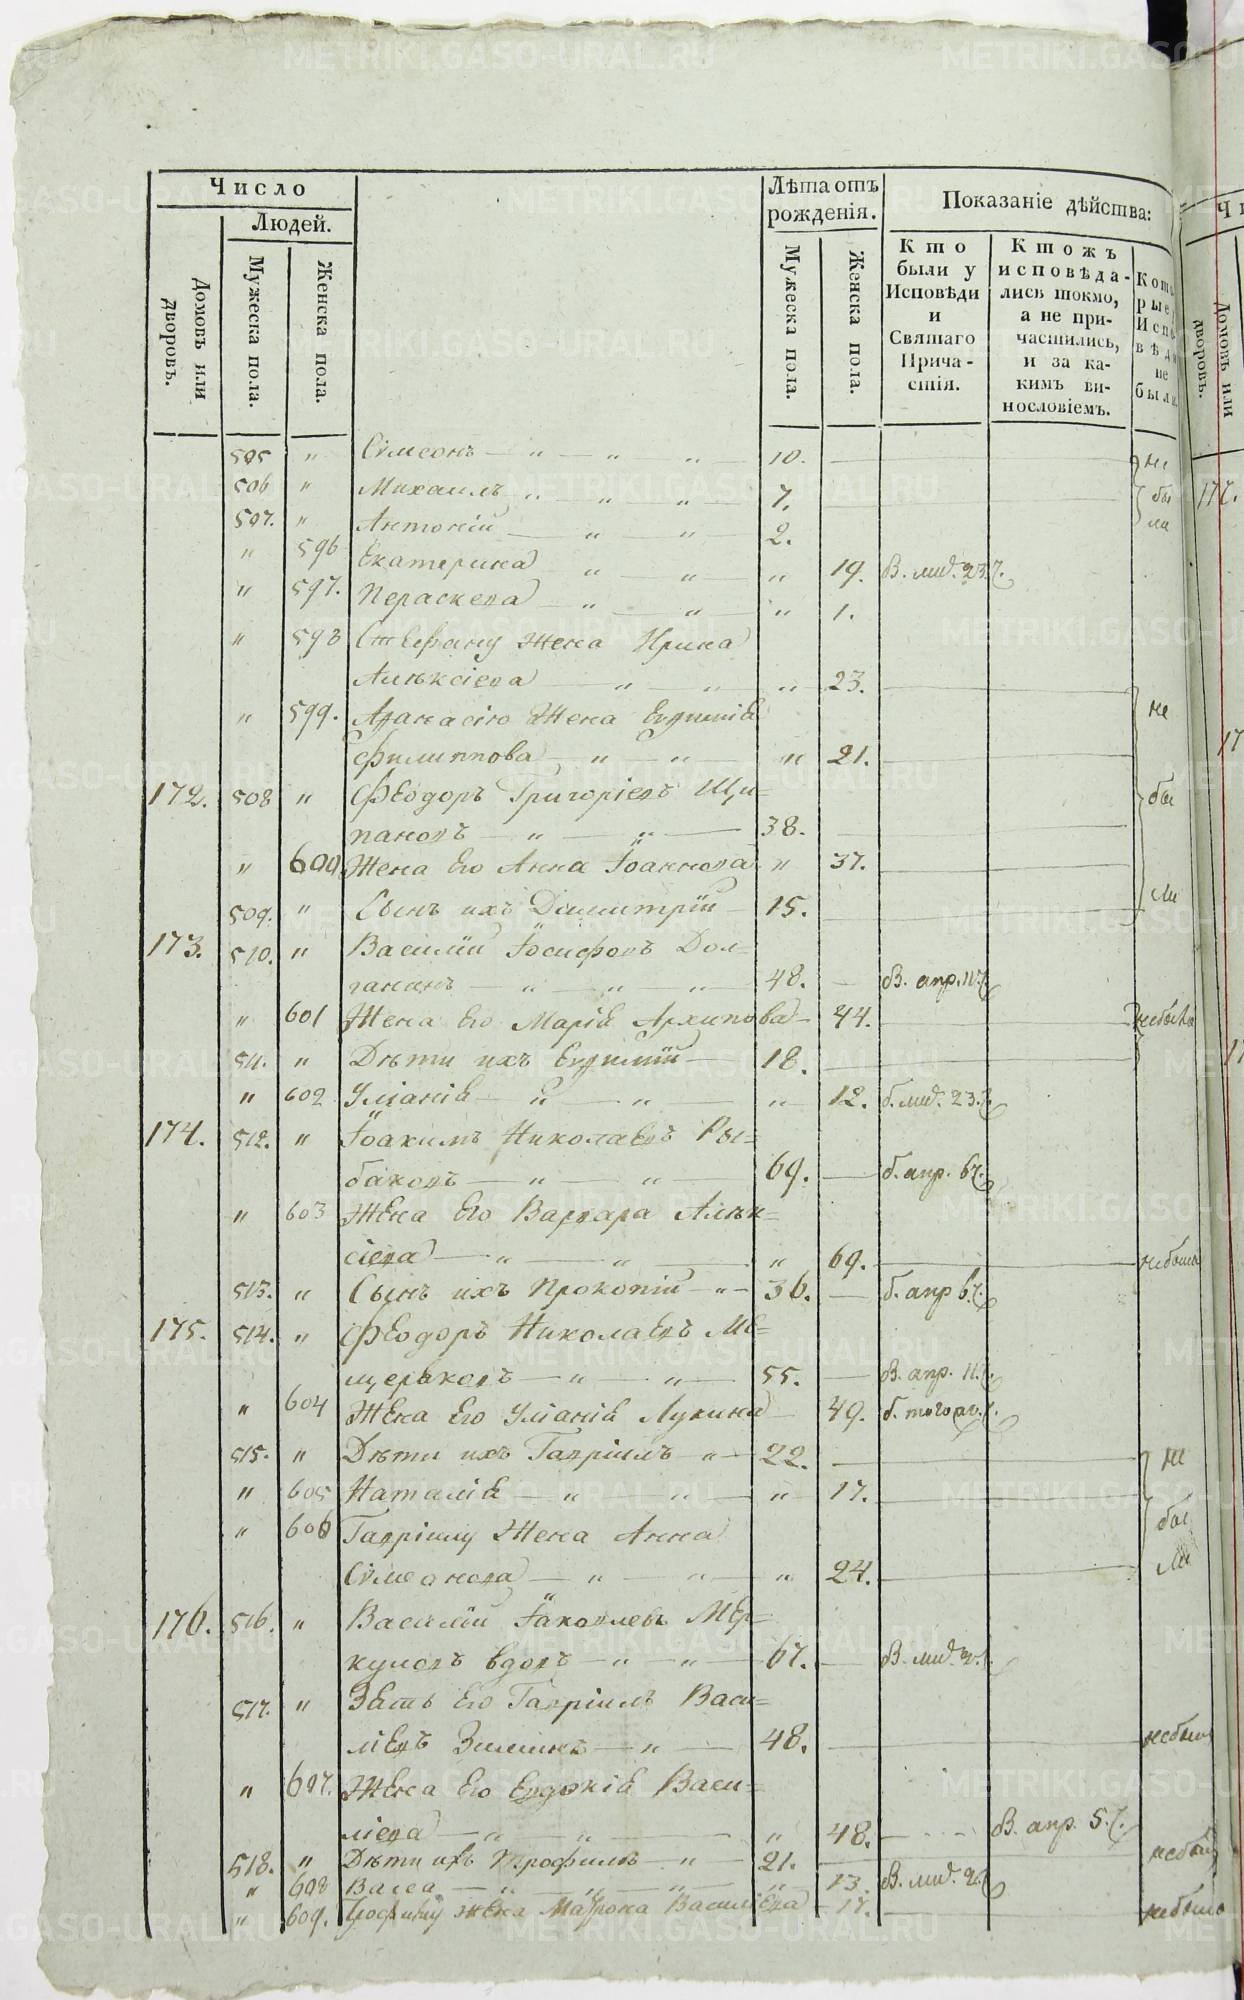 Число
Людей.
Домовъ или дворовъ.
Мужеска пола.
Женска пола.
Лѣта отъ рожденія.
Мужеска пола.
Женска пола.
Показаніе дѣйства:
Кто были у Исповѣди и Святаго Причастія.
Ктожъ исповѣдались токмо, а не причастились, и за какимъ винословіемъ.
Которые Исповѣди не были.
505 " Сѵмеонъ — " — " — " — 10. — не
506 " Михаилъ " — " — " — 7. — бы
507. " Антоній — " — " — 2. ли
" 596 Екатерина — " — " — " 19. В. маія. 23.
" 597. Параскева — " — " — " 1.
" 598 Стефану жена Ирина
Алѣксіева — " — " — " 23.
" 599. Аѳанасію Жена Евѳимія не
Филиппова — " — " — " 21.
172. 508 " Ѳеодоръ Григоріевъ Щи=
пановъ — " — " — 38. — бы
" 600 Жена Его Анна Іоаннова " 37.
509. " Сынъ ихъ Димитрій — 15. — ли
173. 510. " Василій Іосифовъ Дол=
гининъ — " — " — " — 48. — В. апр. 11.
" 601 Жена Его Марія Архипова — 44. — небыла
511. " Дѣти ихъ Евѳимій — 18.
" 602 Уліанія — " — " — " 12. б. маія. 23.
174. 512. " Іоакимъ Николаевъ Ры=
баковъ — " — " — 69. — б. апр. 6
" 603 Жена Его Варвара Алѣк=
сіева — " — " — " 69. — небыла
513. " Сынъ ихъ Прокопій — " — 36. — б. апр 6
175. 514. " Ѳеодоръ Николаевъ Ме=
щеряковъ — " — " — 55. — В. апр. 11.
" 604 Жена Его Уліанія Лукина — 49. б. того
515. " Дѣти ихъ Гавріилъ — " — 22. — не
" 605 Наталія — " — " — " 17. — бы
" 606 Гавріилу Жена Анна
Сѵмеонова — " — " — " 24. — ли
176. 516. " Василій Іаковлевъ Мер=
куловъ вдовъ — " — " — 67. — В. маія
517. " Зять Его Гавріилъ Васи=
ліевъ Зиминъ — " — 48. — небылъ
" 607. Жена Его Евдокія Васи=
ліева — " — " — " 48. — В. апр. 5.
518. " Дѣти ихъ Трофимъ — " — 21. — небылъ
" 608 Васса — " — " — " — " 13. В. маія. 2
" 609. Трофиму жена Матрона Василіева — 17. — небыла